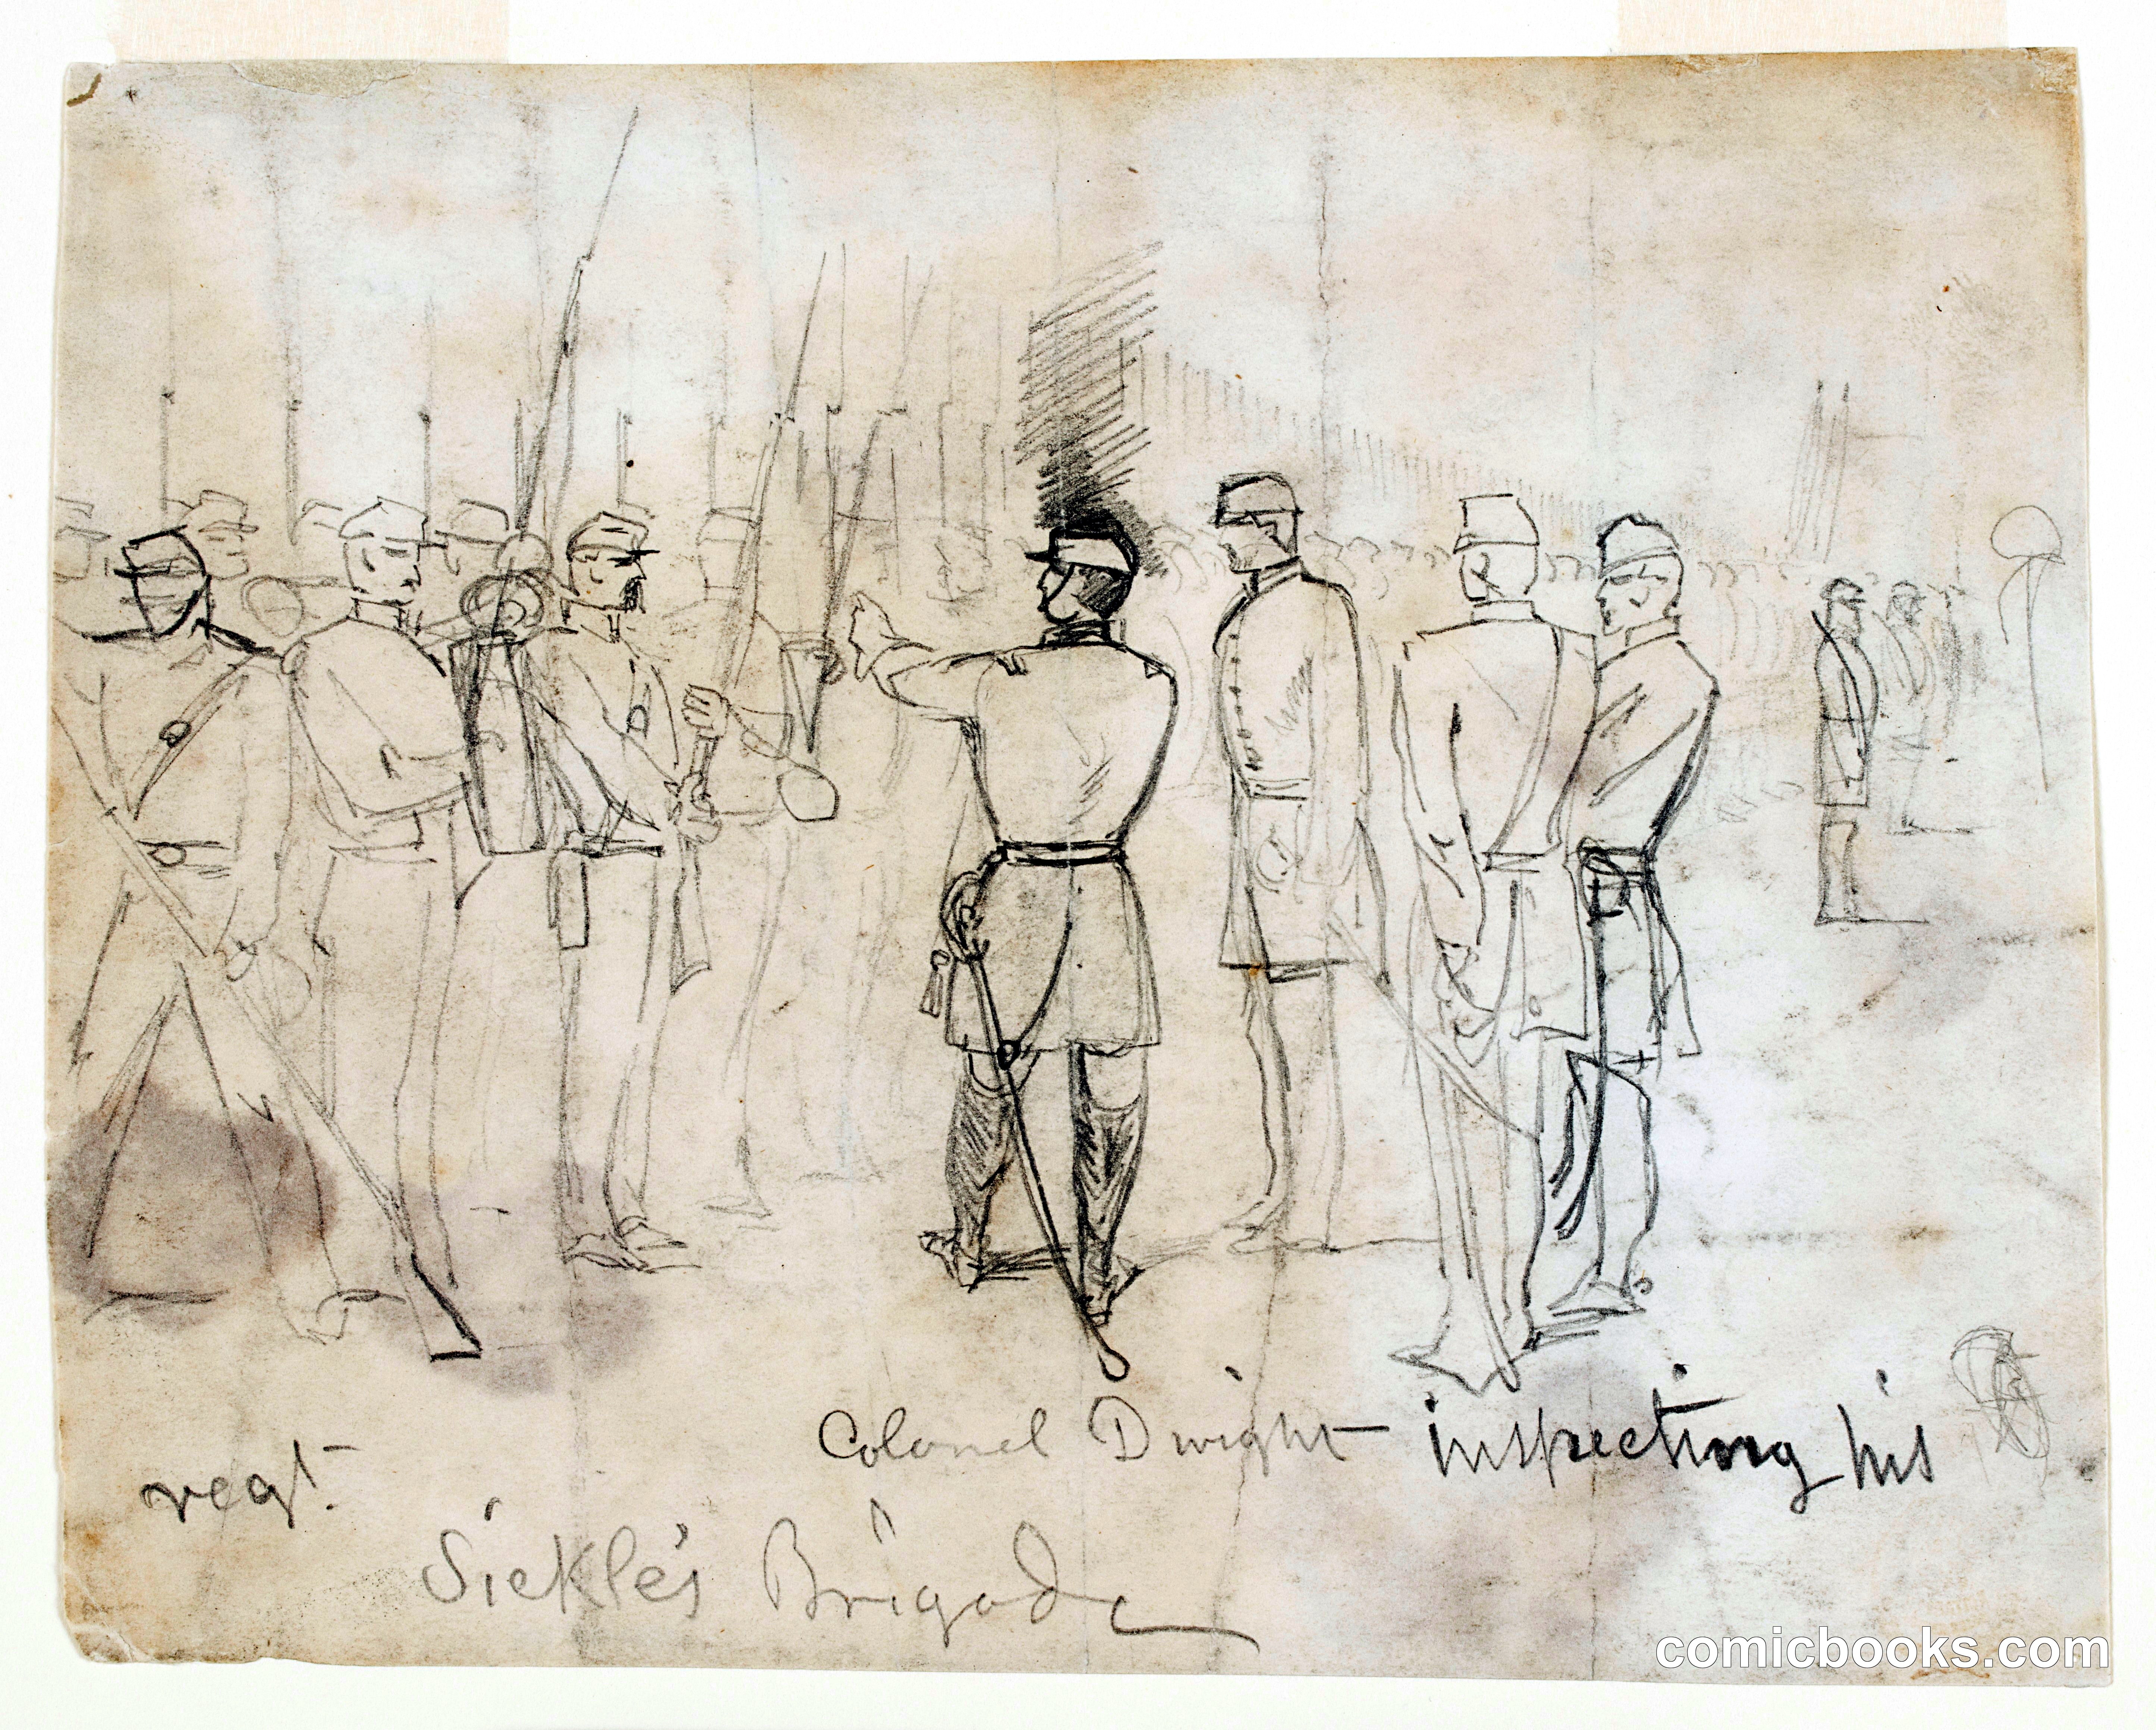 Colonel Dwight inspecting his
regt.
Sickle's Brigade
comicbooks.com